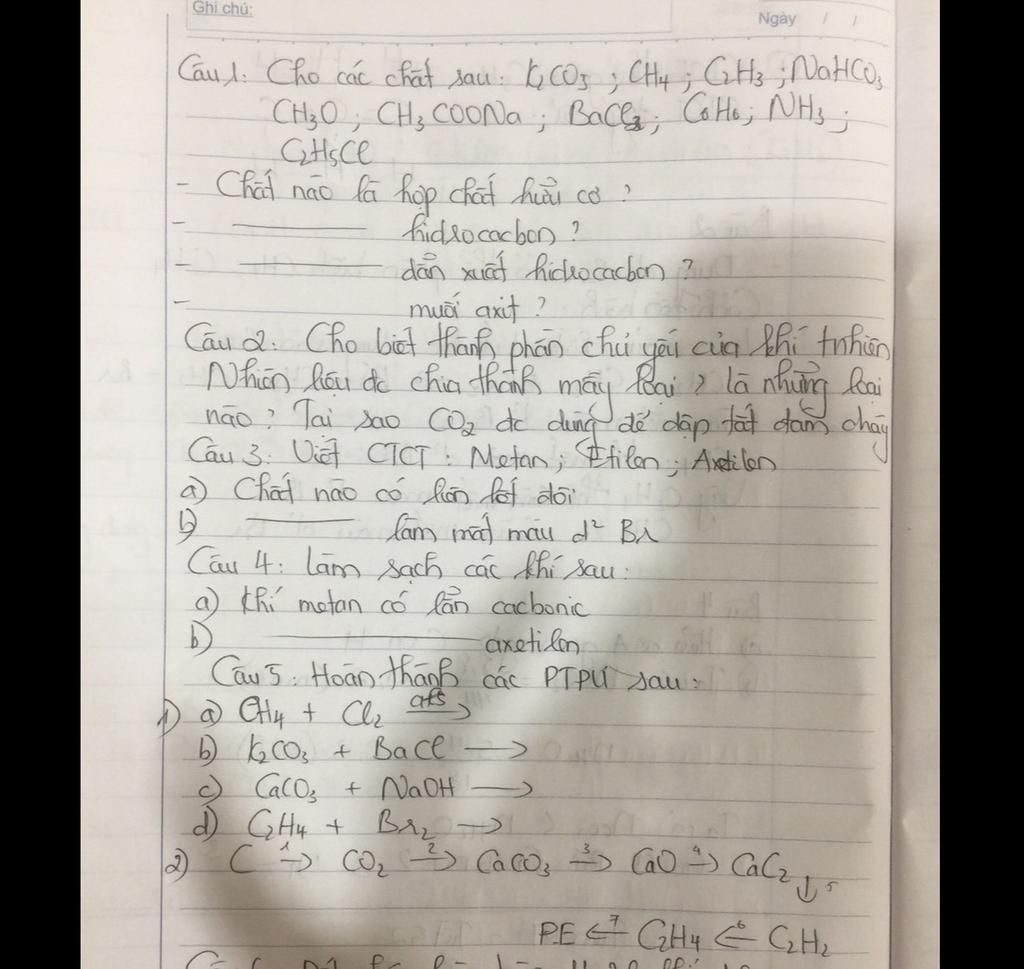 Ghi chú:
Ngày / /
Câu 1: Cho các chất sau: K2CO3; CH4; C2H3; NaHCO3
CH3O; CH3COONa; BaCl2; C6H6; NH3;
C2H5Cl
- Chất nào là hợp chất hữu cơ?
- ——— hidrocacbon?
- ——— dẫn xuất hidrocacbon?
- muối axit?
Câu 2: Cho biết thành phần chủ yếu của khí tnhiên
Nhiên liệu đc chia thành mấy loại? là những loại
nào? Tại sao CO2 đc dùng để dập tắt đám cháy
Câu 3: Viết CTCT: Metan; Etilen; Axetilen
a) Chất nào có liên kết đôi
b) ——— làm mất màu d² Br
Câu 4: Làm sạch các khí sau:
a) Khí metan có lẫn cacbonic
b) ——— axetilen
Câu 5: Hoàn thành các PTPƯ sau:
1) a) CH4 + Cl2 —as→
b) K2CO3 + BaCl →
c) CaCO3 + NaOH →
d) C2H4 + Br2 →
2) C —1→ CO2 —2→ CaCO3 —3→ CaO —4→ CaC2 ↓5
PE ←7— C2H4 ←6— C2H2